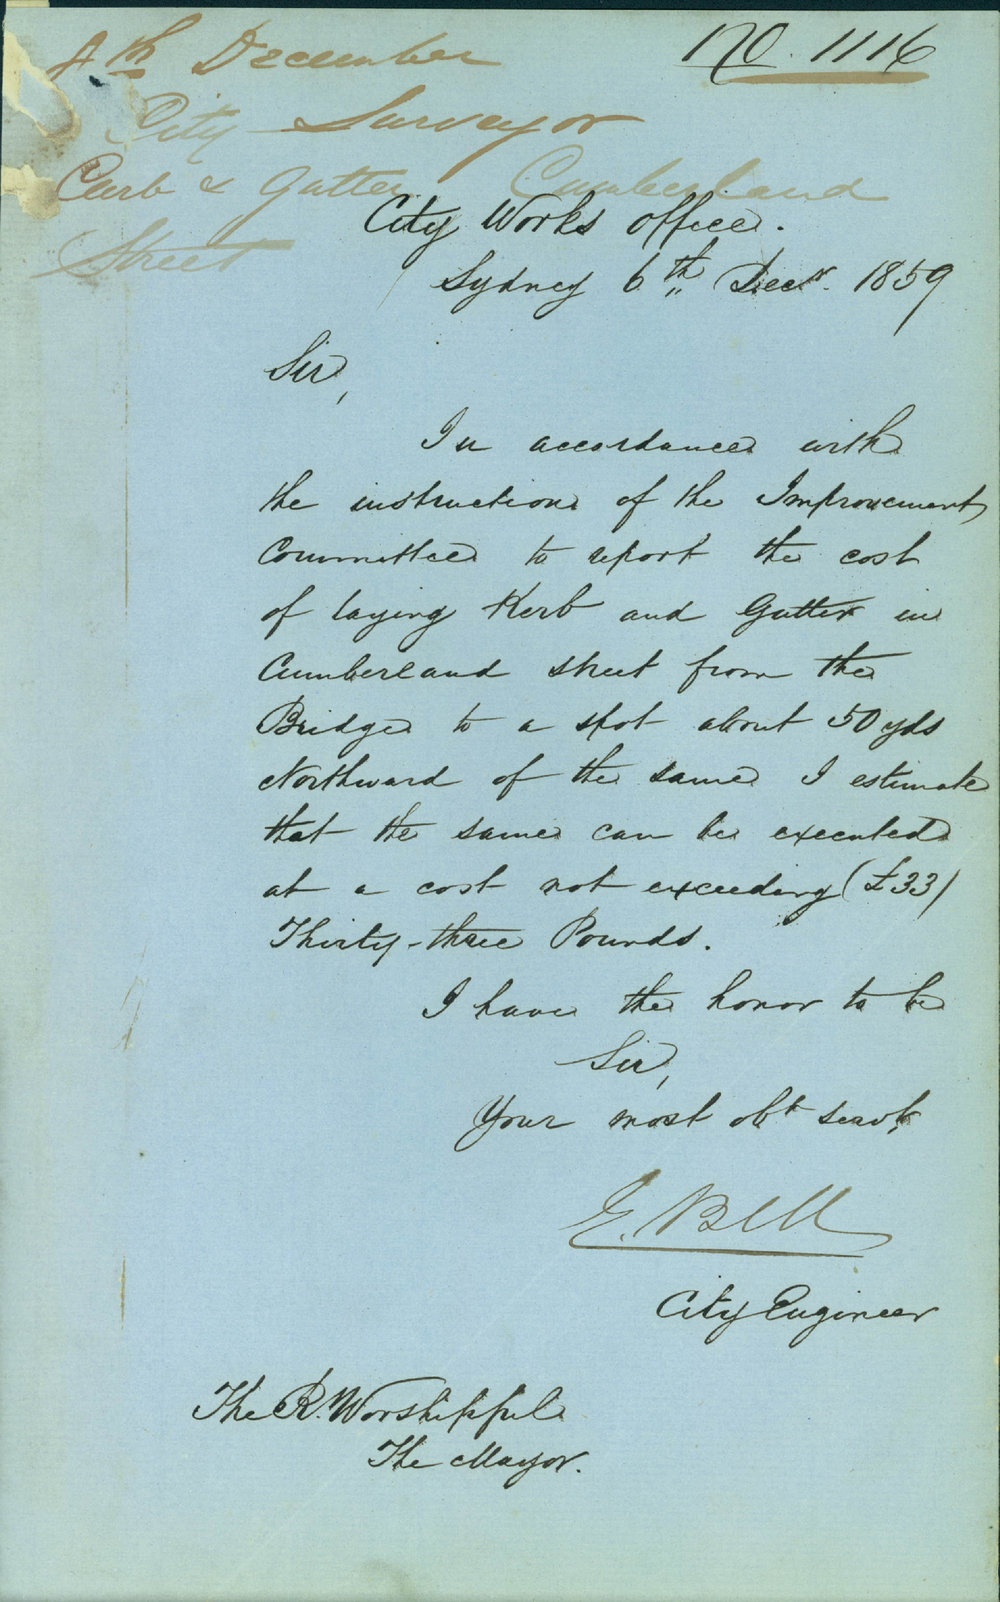 No. 1116
th December
City Surveyor
Curb & Gutter Cumberland
Street
City Works Office.
Sydney 6th Decr. 1859
Sir,
In accordance with
the instructions of the Improvement
Committee to report the cost
of laying Kerb and Gutter in
Cumberland Street from the
Bridge to a spot about 50 yds
Northward of the same I estimate
that the same can be executed
at a cost not exceeding (£33)
Thirty-three Pounds.
I have the honor to be
Sir,
Your most obt servt,
E. Bell
City Engineer
The R. Worshipful
The Mayor.